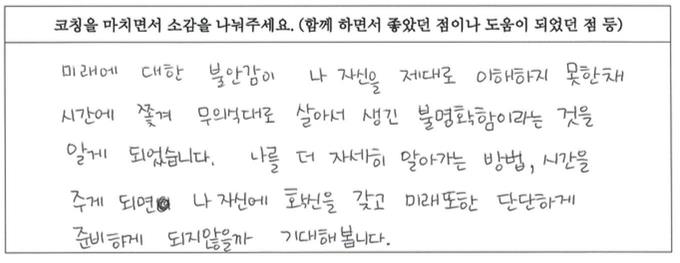 코칭을 마치면서 소감을 나눠주세요. (함께 하면서 좋았던 점이나 도움이 되었던 점 등)
미래에 대한 불안감이 나 자신을 제대로 이해하지 못한채
시간에 쫓겨 무의식대로 살아서 생긴 불명확함이라는 것을
알게 되었습니다. 나를 더 자세히 알아가는 방법, 시간을
주게 되면 나 자신에 확신을 갖고 미래또한 단단하게
준비하게 되지않을까 기대해봅니다.